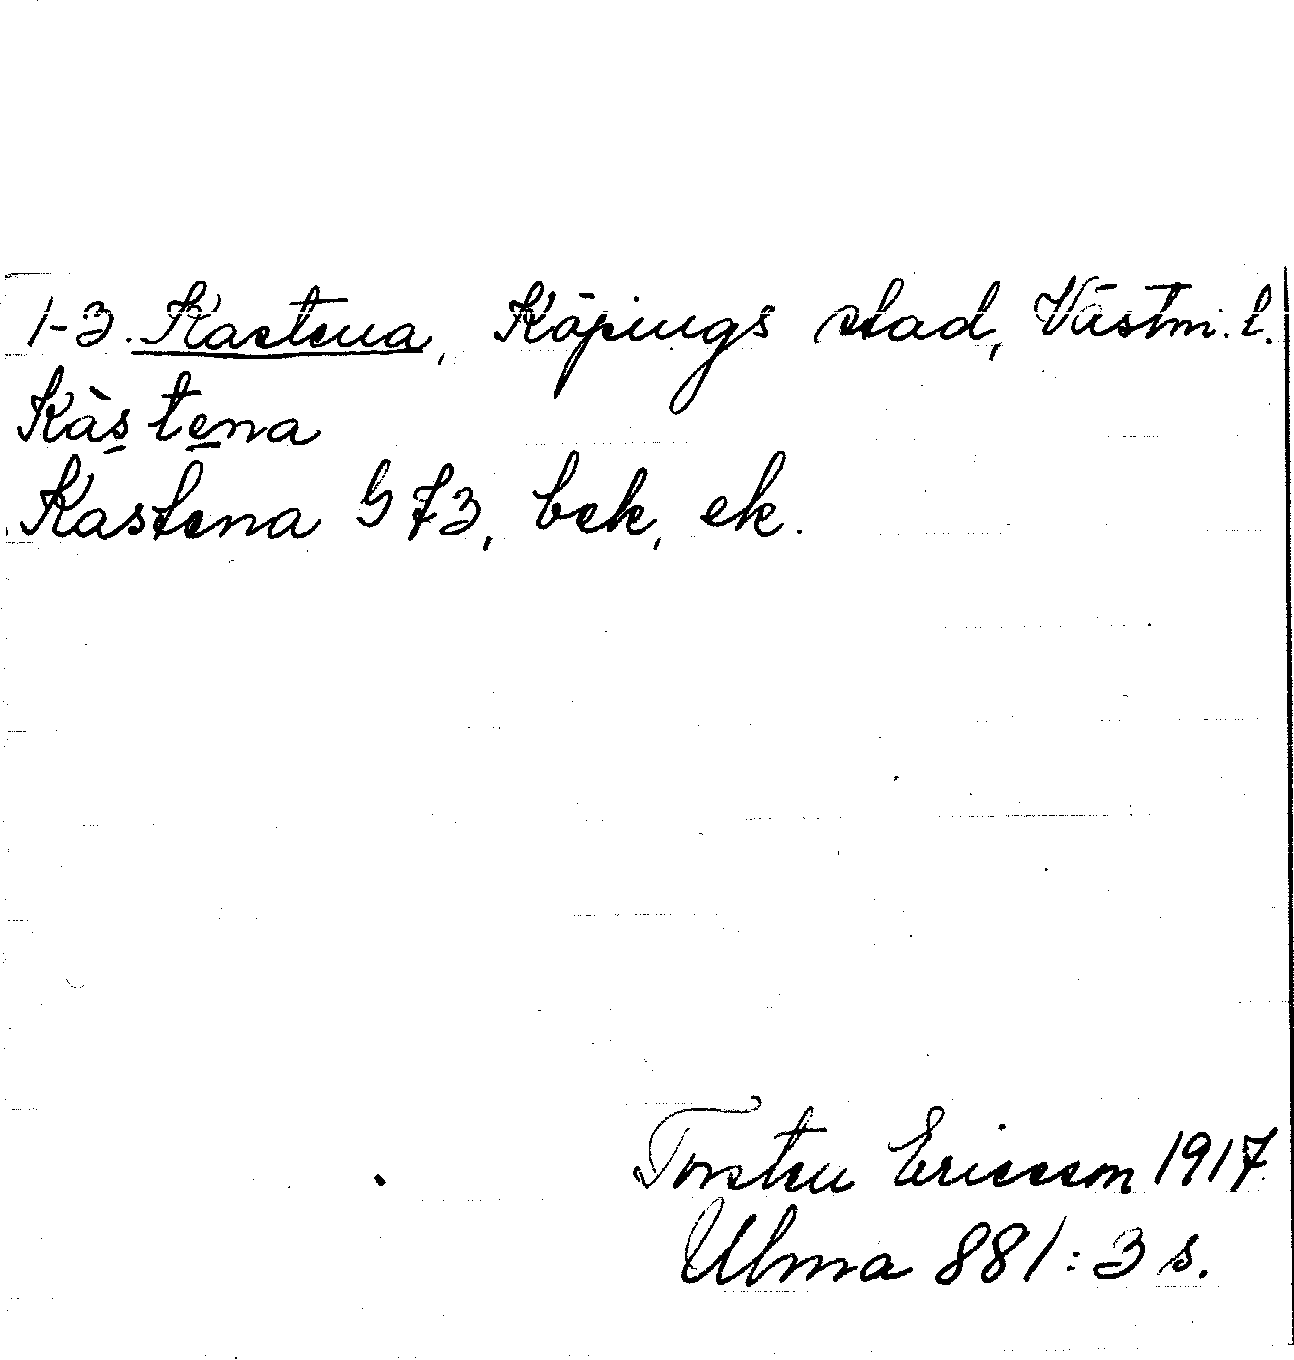 1-3. Kastena, Köpings stad, Västm. l.
Kàs̱te̱na
Kastena G 73, bek, ek.
Torsten Ericsson 1917
Ulma 881:3 s.